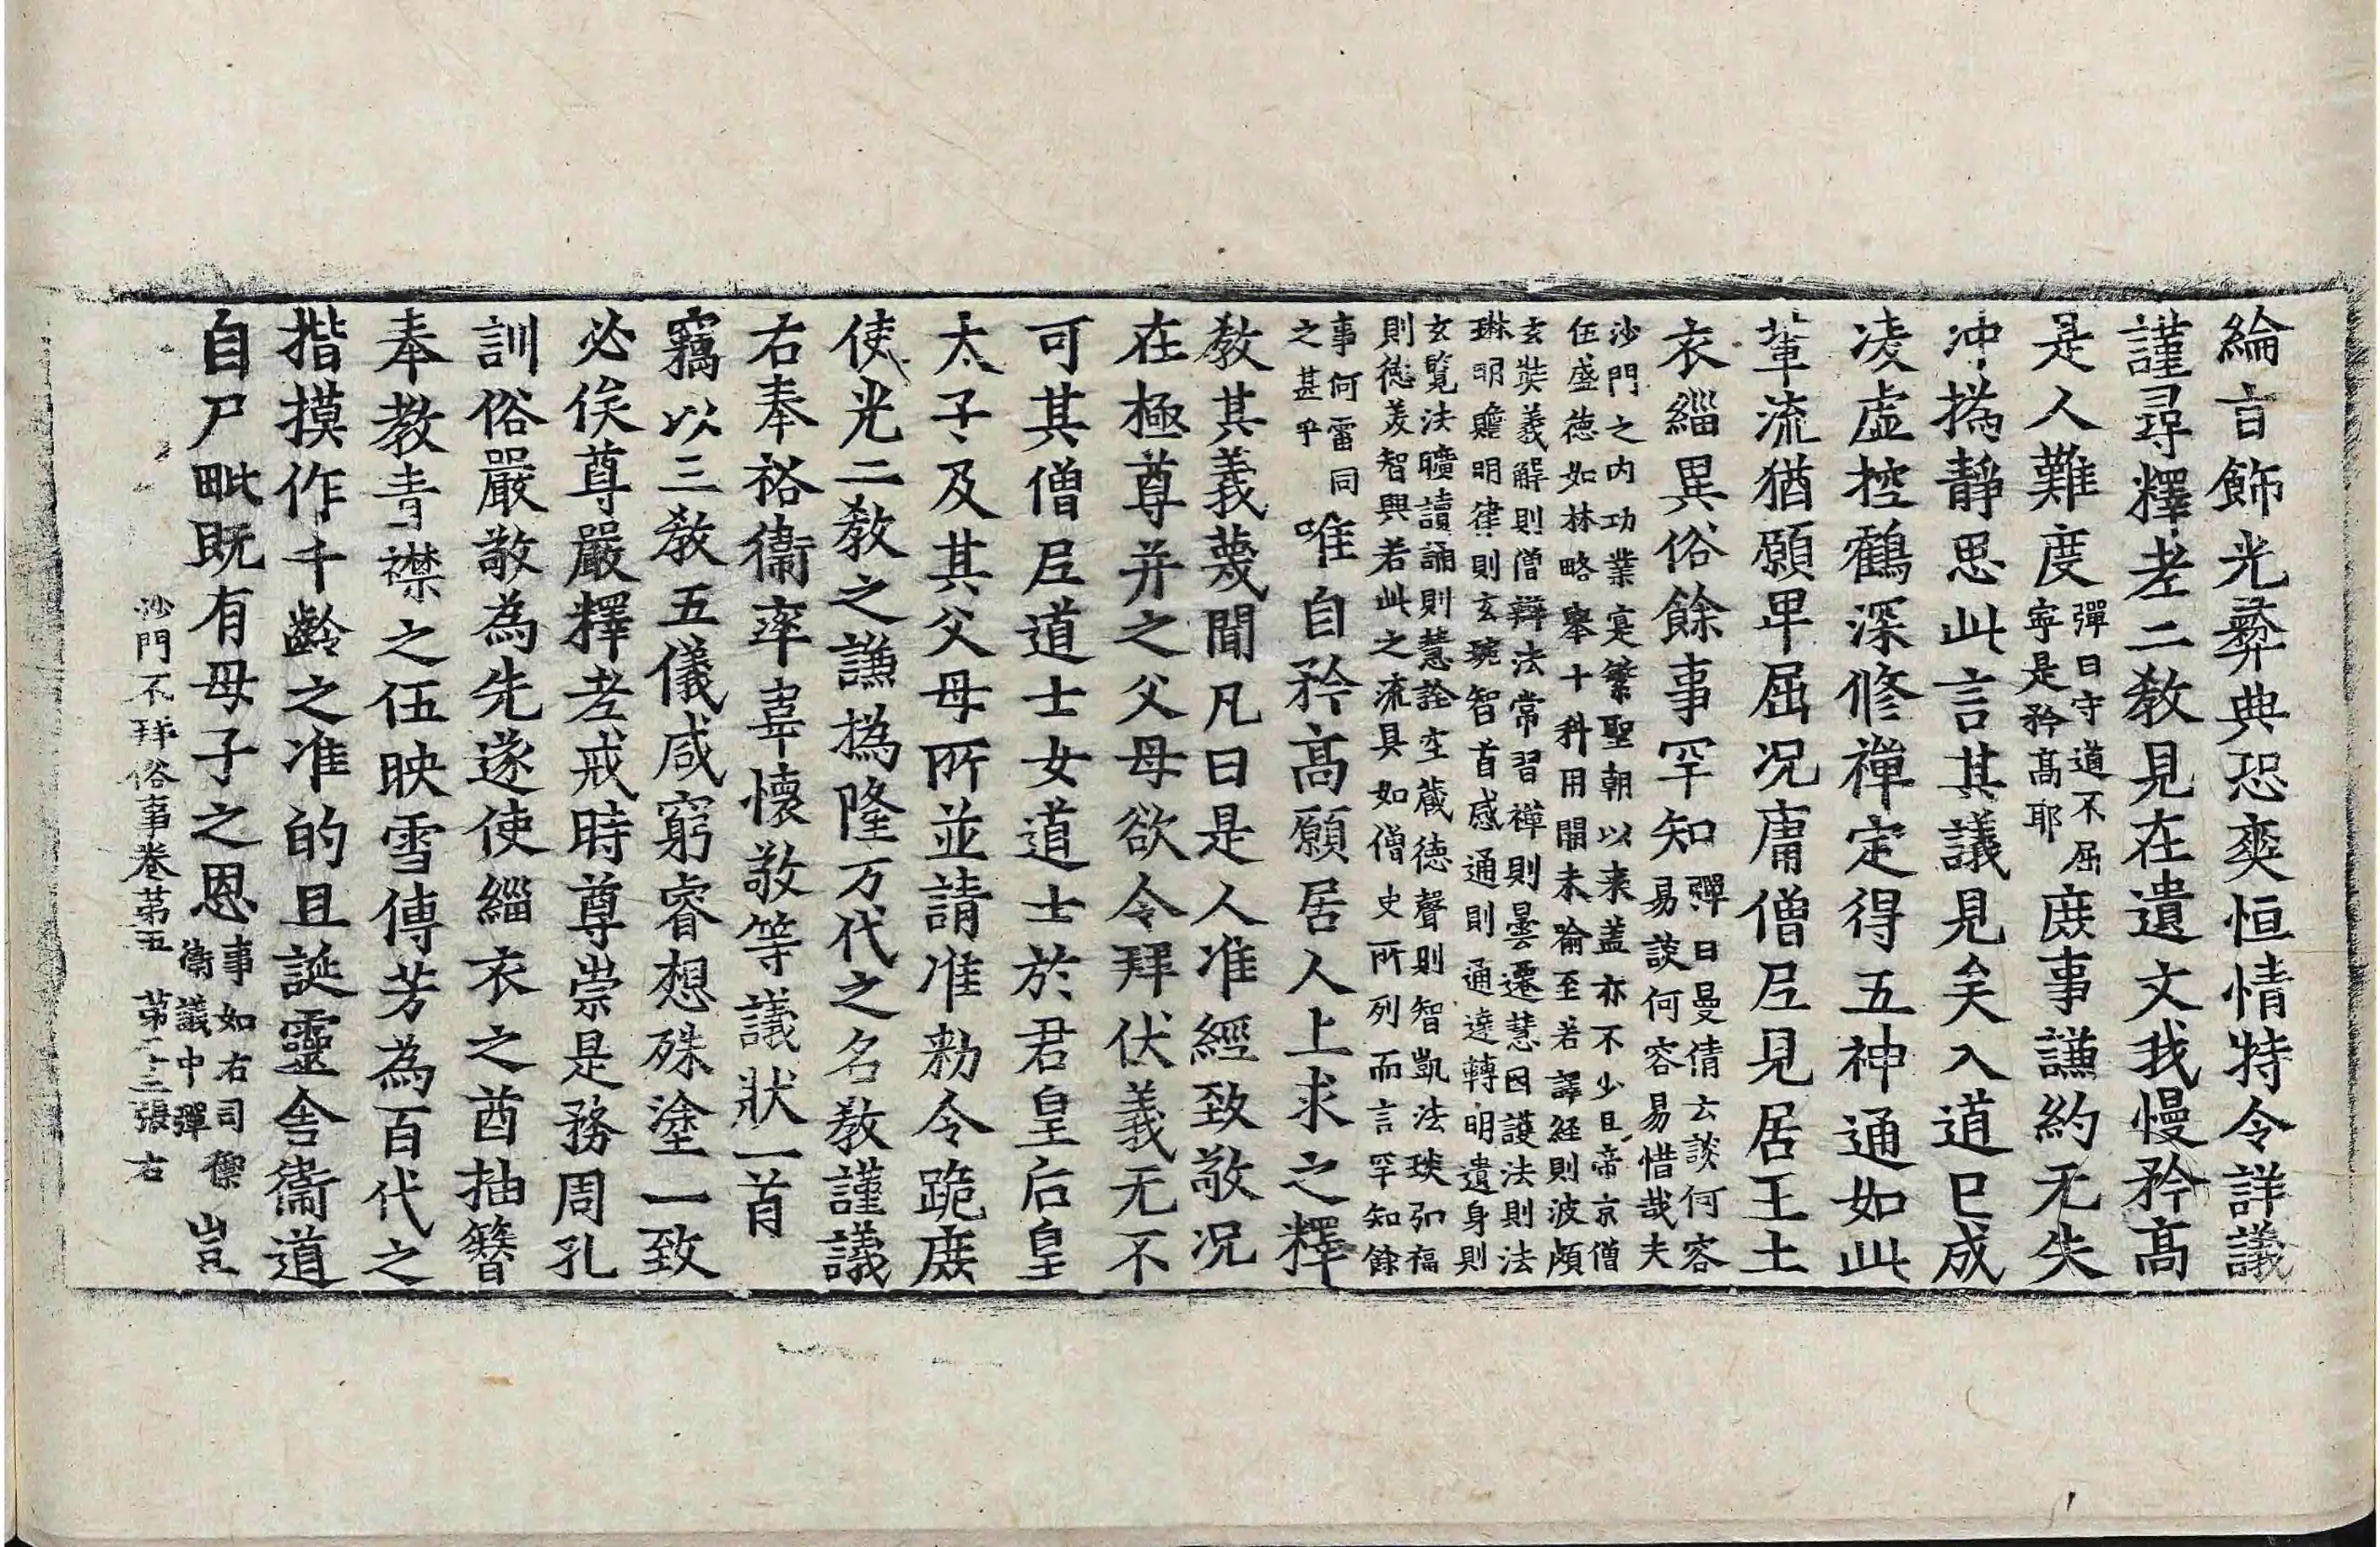 綸言飾光彝典恐奕恒情特令詳議
謹尋釋老二教見在遺文我慢矜高
是人難度彈曰守道不屈寧是矜高耶庶事謙約无失
沖撝靜思此言其議見矣入道已成
凌虛控鶴深修禪定得五神通如此
輩流猶願卑屈況庸僧尼見居王土
衣緇異俗餘事罕知彈曰曼倩云談何容易談何容易惜哉夫
沙門之內功業寔繁聖朝以来盖亦不少且帝京僧
伍盛徳如林略舉十科用開未喻至若譯経則波頗
玄奘義解則僧辯法常習禪則曇遷慧因護法則法
琳明贍明律則玄琬智首感通則通達轉明遺身則
玄覧法曠讀誦則慧詮空藏徳聲則智凱法琰初福
則徳美智興若此之流具如僧史所列而言罕知餘
事何雷同之甚乎唯自矜高願居人上求之釋
教其義蔑聞凡曰是人准經致敬況
在極尊并之父母欲令拜伏義无不
可其僧尼道士女道士於君皇后皇
太子及其父母所並請准勑令跪庶
使光二教之謙撝隆万代之名教謹議
右奉裕衛率韋懷敬等議狀一首
竊以三教五儀咸窮睿想殊塗一致
必俟尊嚴釋老戒時尊崇是務周孔
訓俗嚴敬為先遂使緇衣之酋抽簪
奉教青襟之伍映雪傳芳為百代之
揩摸作千齡之准的且誕靈舍衛道
自尸毗既有母子之恩事如右司禦衛議中彈豈
沙門不拜俗事卷苐五 苐二十二張 右